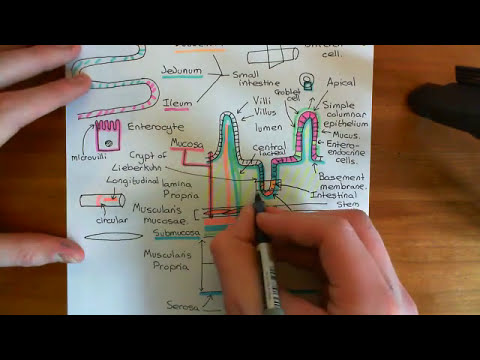 cell.
Jejunum
Small
intestine
Ileum
Goblet
cell
Apical
Villi
Villus
Simple
columnar
epithelium
Enterocyte
lumen
Mucus.
Mucosa
central
lacteal
Entero-
endocrine
cells.
microvilli
Crypt of
Lieberkuhn
Longitudinal
lamina
Propria
Basement
membrane.
Intestinal
Stem
circular
Muscularis
mucosae.
Submucosa
Muscularis
Propria
Serosa